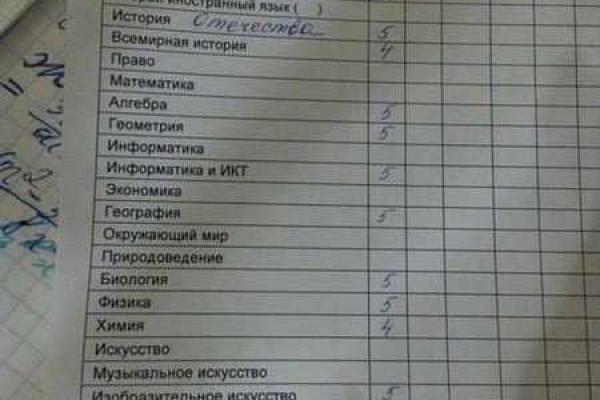 иностранный язык ( )
История Отечества 5
Всемирная история 4
Право
Математика
Алгебра 5
Геометрия 5
Информатика
Информатика и ИКТ 5
Экономика
География 5
Окружающий мир
Природоведение
Биология 5
Физика 5
Химия 4
Искусство
Музыкальное искусство
Изобразительное искусство 5